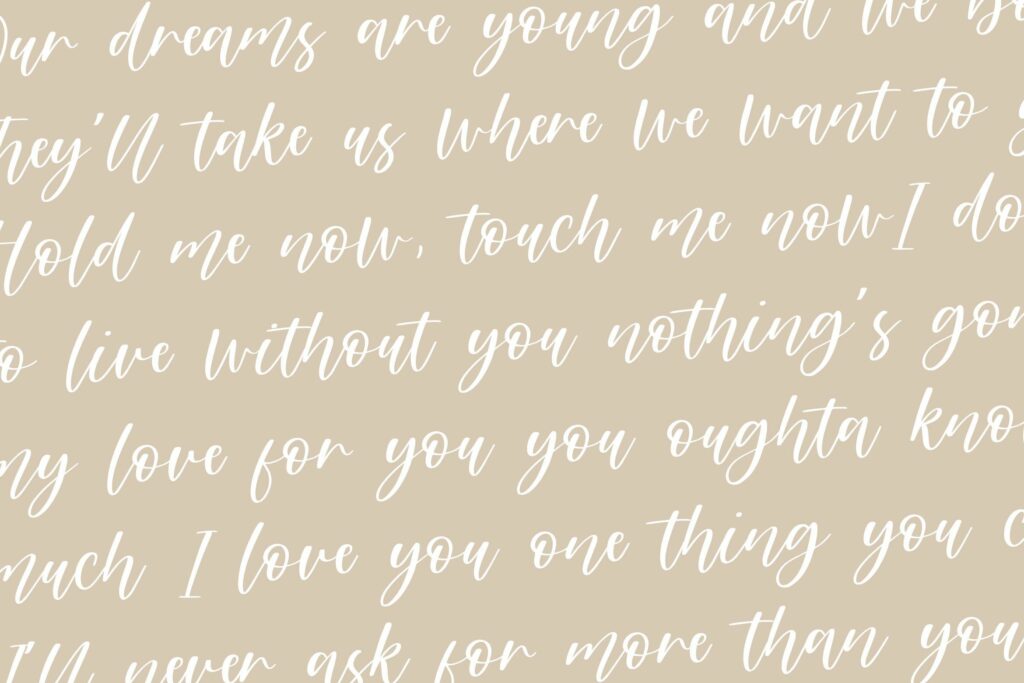 Our dreams are young and we bo
they'll take us where we want to g
Hold me now, touch me now I do
to live without you nothing's gon
my love for you you oughta kno
much I love you one thing you c
I'll never ask for more than you